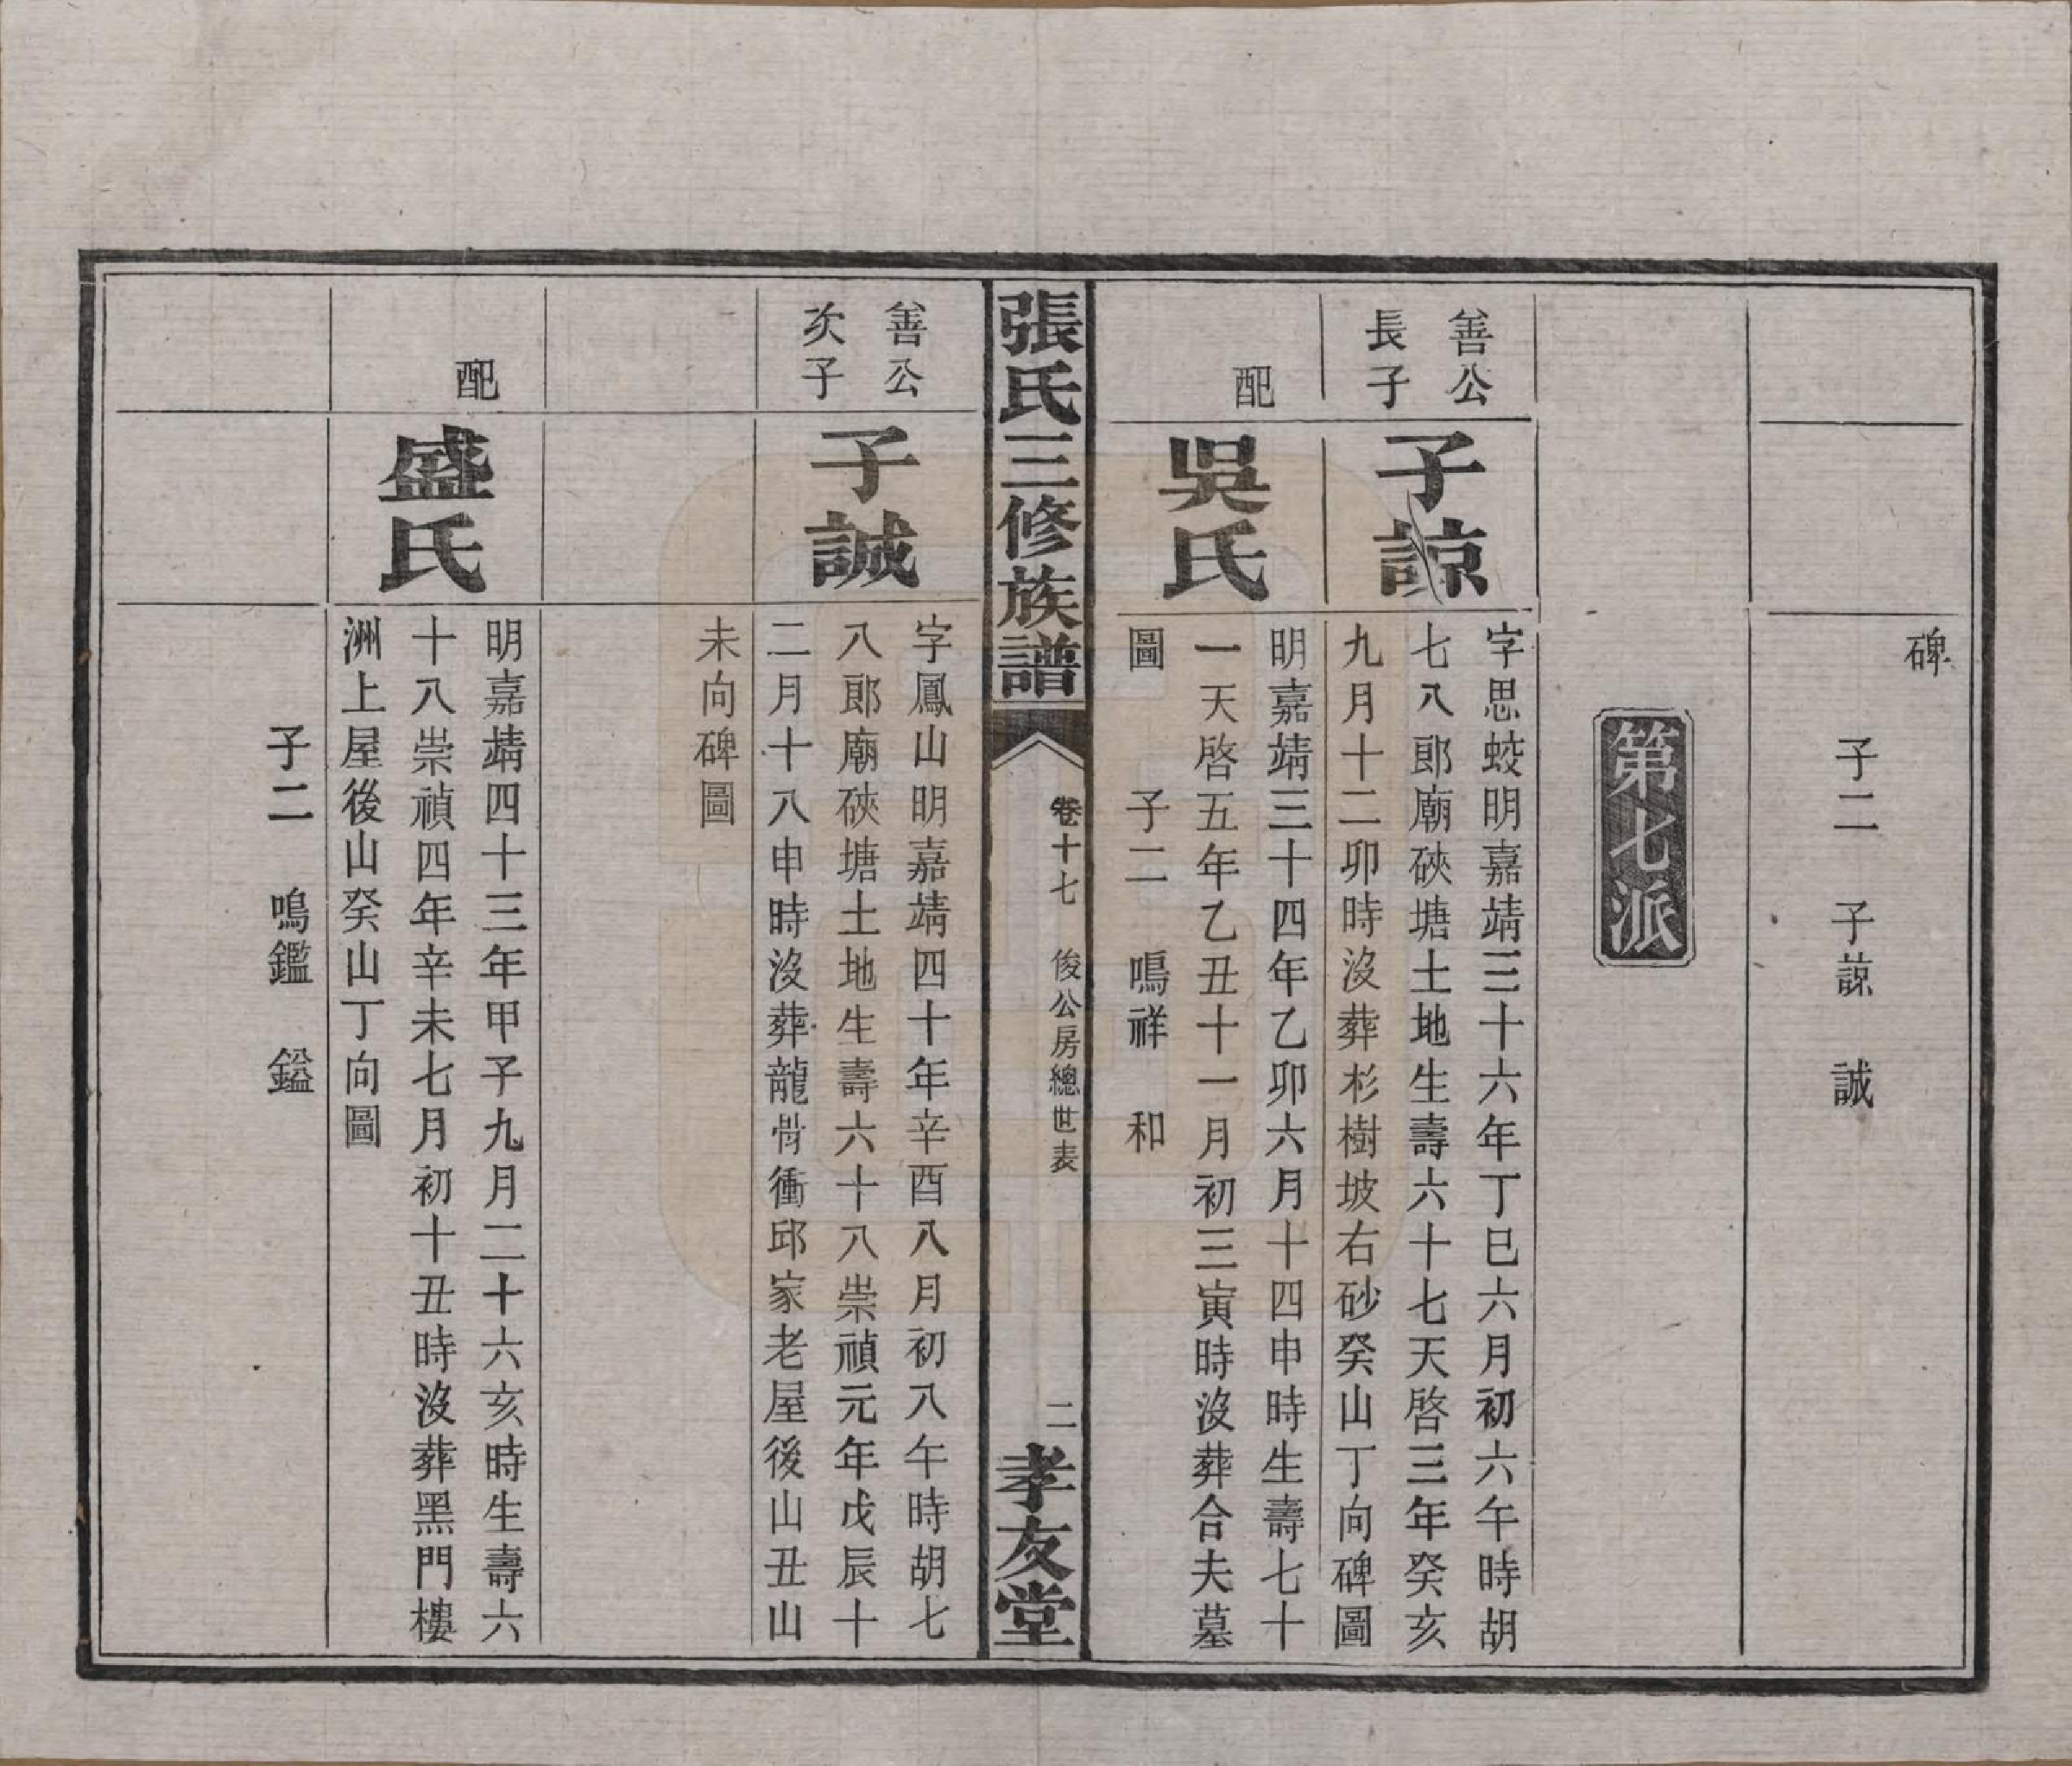 碑
子二　子諒　誠
第七派
善公
長子
子諒
字思蛟明嘉靖三十六年丁巳六月初六午時胡
七八郎廟硤塘土地生壽六十七天啓三年癸亥
九月十二卯時沒葬杉樹坡右砂癸山丁向碑圖
配
吳氏
明嘉靖三十四年乙卯六月十四申時生壽七十
一天啓五年乙丑十一月初三寅時沒葬合夫墓
圖
子二　鳴祥　和
張氏三修族譜
卷十七　俊公房總世表
二
孝友堂
善公
次子
子誠
字鳳山明嘉靖四十年辛酉八月初八午時胡七
八郎廟硤塘土地生壽六十八崇禎元年戊辰十
二月十八申時沒葬龍骨衝邱家老屋後山丑山
未向碑圖
配
盛氏
明嘉靖四十三年甲子九月二十六亥時生壽六
十八崇禎四年辛未七月初十丑時沒葬黑門樓
洲上屋後山癸山丁向圖
子二　鳴鑑　鎰